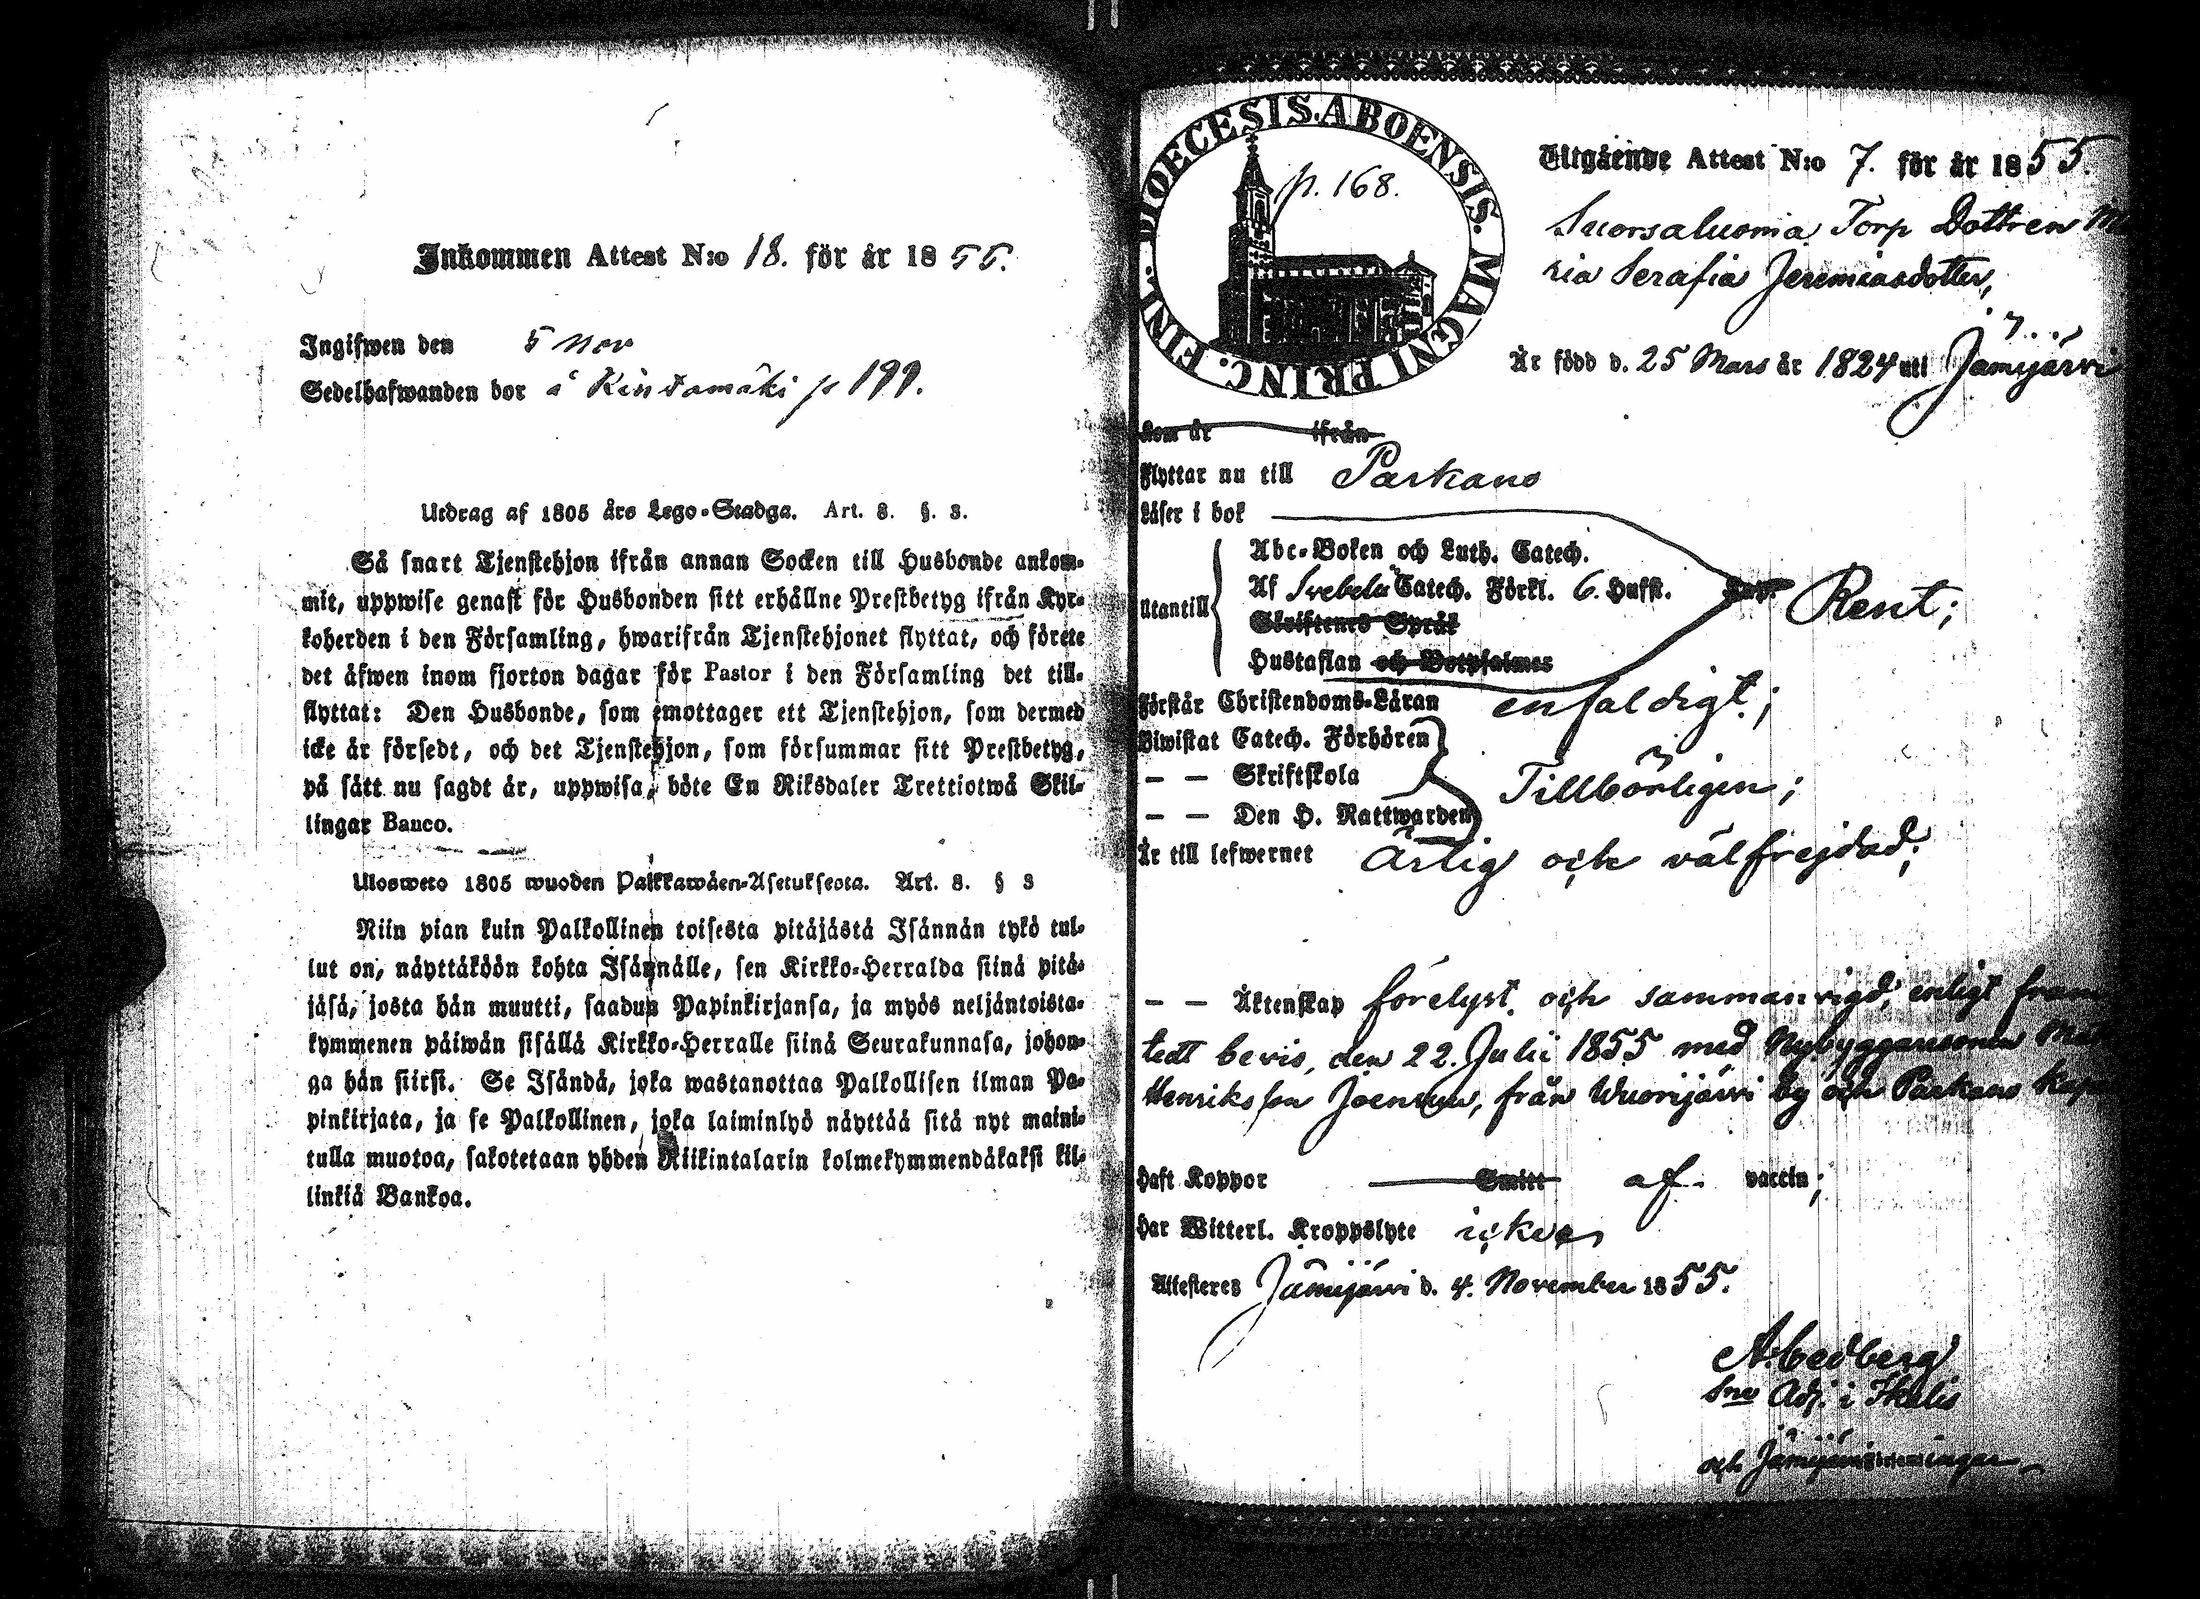 Inkommen Attest N:o 18. för år 1855.
Ingifwen den 5 Nov
Sedelhafwanden bor å Kindamäki p 199.
Utdrag af 1805 års Lego-Stadga. Art. 8. §. 3.
Så snart Tjenstehjon ifrån annan Socken till Husbonde ankom-
mit, uppwise genast för Husbonden sitt erhållne Prestbetyg ifrån Kyr-
koherden i den Församling, hwarifrån Tjenstehjonet flyttat, och förete
det äfwen inom fjorton dagar för Pastor i den Församling det till-
flyttat: Den Husbonde, som emottager ett Tjenstehjon, som dermed
icke är försedt, och det Tjenstehjon, som försummar sitt Prestbetyg,
på sätt nu sagdt är, uppwisa, böte En Riksdaler Trettiotwå Skil-
lingar Banco.
Ulosweto 1805 wuoden Palkkawäen-Asetuksesta. Art. 8. § 3
Niin pian kuin Palkollinen toisesta pitäjästä Isännän tykö tul-
lut on, näyttäköön kohta Isännälle, sen Kirkko-Herralda siinä pitä-
jäsä, josta hän muutti, saadun Papinkirjansa, ja myös neljäntoista-
kymmenen päiwän sisällä Kirkko-Herralle siinä Seurakunnasa, johon-
ga hän siirsi. Se Isändä, joka wastanottaa Palkollisen ilman Pa-
pinkirjata, ja se Palkollinen, joka laiminlyö näyttää sitä nyt maini-
tulla muotoa, sakotetaan yhden Riikintalarin kolmekymmendäkaksi kil-
linkiä Bankoa.
DIOECESIS. ABOENSIS. MAGNI PRINC. FINL.
p. 168.
Utgående Attest N:o 7. för år 1855.
Suorsaluoma Torp Dottren Ma
ria Serafia Jeremiasdotter,
Är född d. 25 Mars år 1824 uti Jämijärvi
Kom år ifrån
Flyttar nu till Parkano
Läser i bok
Abc-Boken och Luth. Catech.
Utantill Af Svebelii Catech. Förkl. 6. Hufst. Rent;
Skriftenes Språk
Hustaflan och Botpsalmer
Förstår Christendoms-Läran enfaldigt;
Biwistat Catech. Förhören
— — Skriftskola Tillbörligen;
— — Den H. Nattwarden
Är till lefwernet ärlig och välfrejdad;
— — Äktenskap förelyst och sammanvigd, enligt fram
tedt bevis, den 22. Julii 1855 med Nybyggaresonen
Henriksson Joensuu, från Wuorijärvi by och Parkano
Haft Koppor Smitt af vaccin;
Har Witterl. Kroppslyte icke
Attesteres Jämijärvi d. 4. November 1855.
A. Cedberg
Adj. i Ikalis
och Jämijärvi